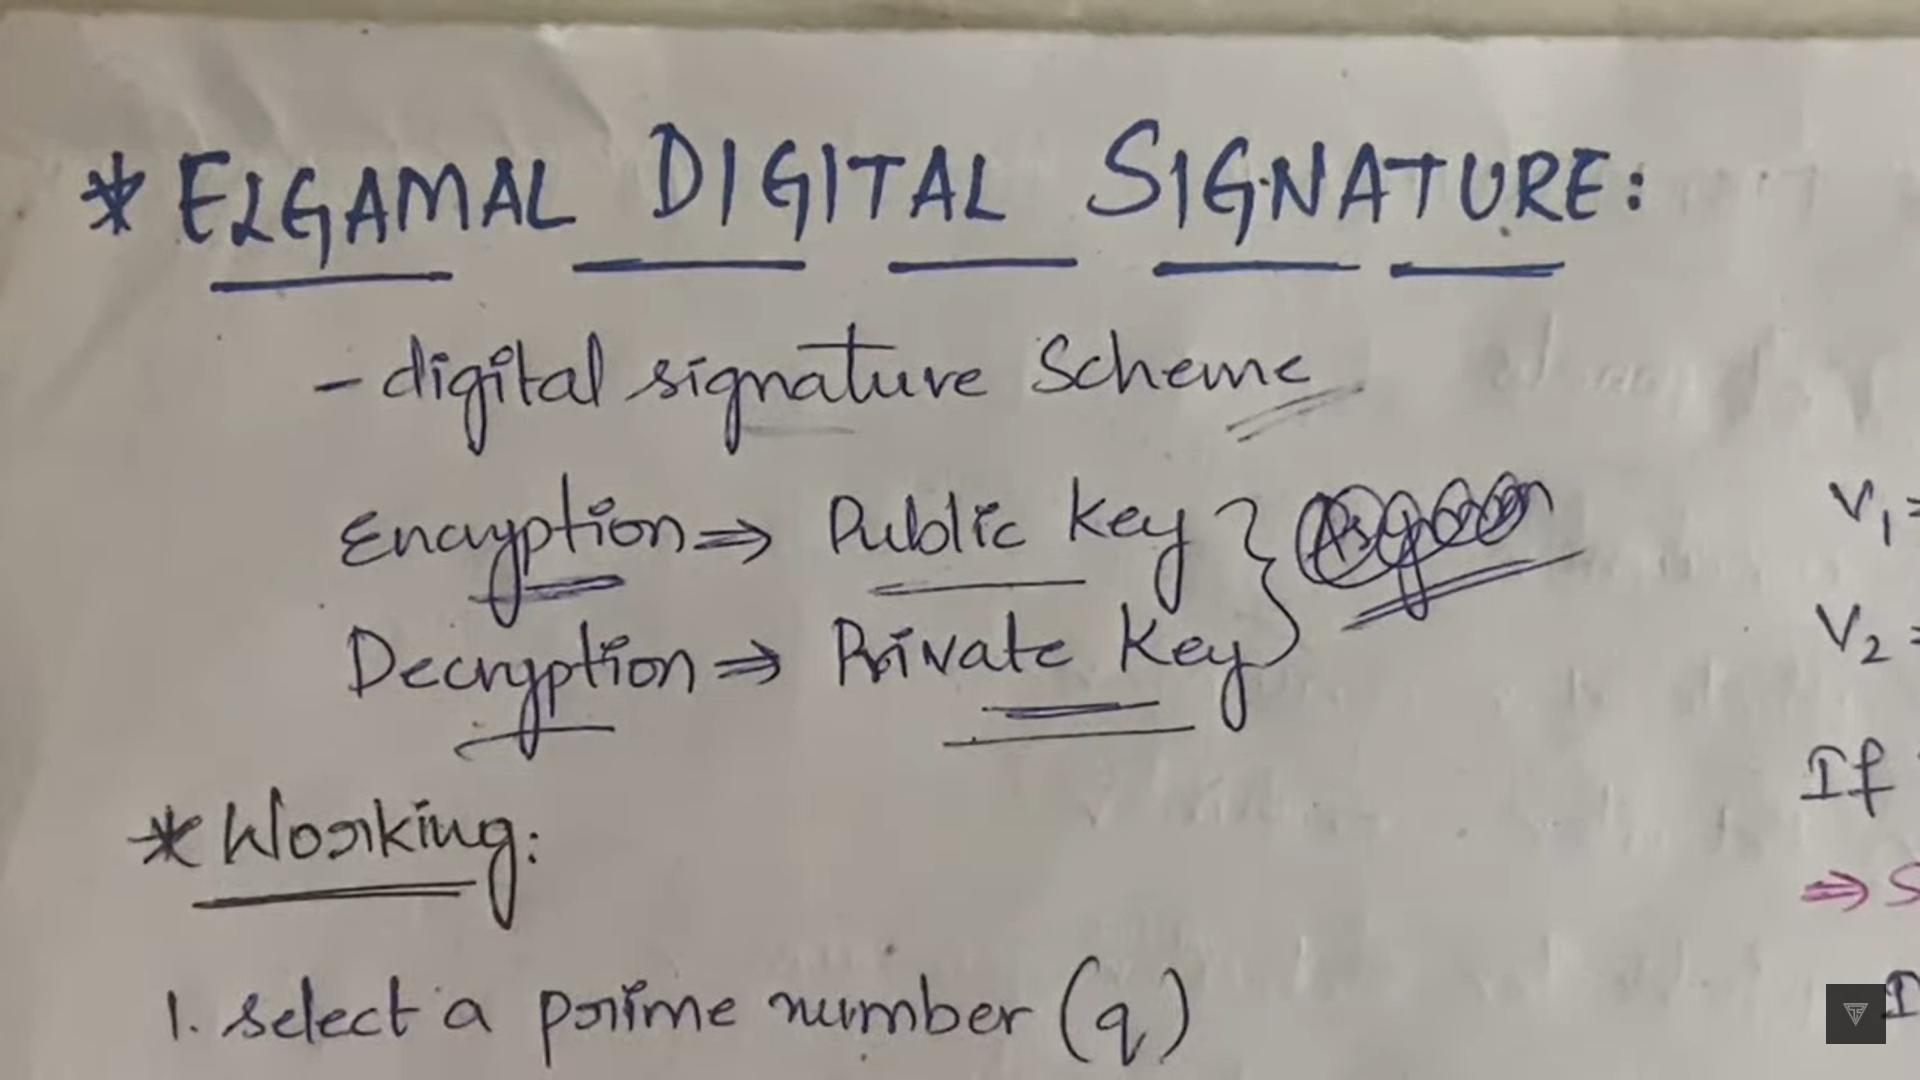 * ELGAMAL DIGITAL SIGNATURE:
- digital signature Scheme
Encryption ⇒ Public key }
Decryption ⇒ Private key
* Working:
1. select a prime number (q)
V₁ =
V₂ =
If
⇒ S